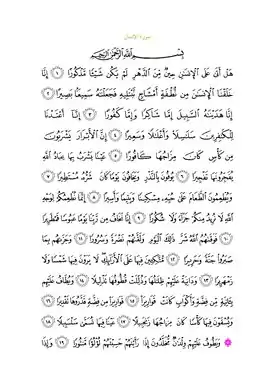 سورة الإنسان
بِسْمِ اللَّهِ الرَّحْمَٰنِ الرَّحِيمِ
هَلْ أَتَىٰ عَلَى الْإِنسَٰنِ حِينٌ مِّنَ الدَّهْرِ لَمْ يَكُن شَيْـًٔا مَّذْكُورًا ١ إِنَّا
خَلَقْنَا الْإِنسَٰنَ مِن نُّطْفَةٍ أَمْشَاجٍ نَّبْتَلِيهِ فَجَعَلْنَٰهُ سَمِيعًۢا بَصِيرًا ٢
إِنَّا هَدَيْنَٰهُ السَّبِيلَ إِمَّا شَاكِرًا وَإِمَّا كَفُورًا ٣ إِنَّآ أَعْتَدْنَا
لِلْكَٰفِرِينَ سَلَٰسِلَا۟ وَأَغْلَٰلًا وَسَعِيرًا ٤ إِنَّ الْأَبْرَارَ يَشْرَبُونَ
مِن كَأْسٍ كَانَ مِزَاجُهَا كَافُورًا ٥ عَيْنًا يَشْرَبُ بِهَا عِبَادُ اللَّهِ
يُفَجِّرُونَهَا تَفْجِيرًا ٦ يُوفُونَ بِالنَّذْرِ وَيَخَافُونَ يَوْمًا كَانَ شَرُّهُۥ مُسْتَطِيرًا ٧
وَيُطْعِمُونَ الطَّعَامَ عَلَىٰ حُبِّهِۦ مِسْكِينًا وَيَتِيمًا وَأَسِيرًا ٨ إِنَّمَا نُطْعِمُكُمْ لِوَجْهِ
اللَّهِ لَا نُرِيدُ مِنكُمْ جَزَآءً وَلَا شُكُورًا ٩ إِنَّا نَخَافُ مِن رَّبِّنَا يَوْمًا عَبُوسًا قَمْطَرِيرًا
١٠ فَوَقَىٰهُمُ اللَّهُ شَرَّ ذَٰلِكَ الْيَوْمِ وَلَقَّىٰهُمْ نَضْرَةً وَسُرُورًا ١١ وَجَزَىٰهُم بِمَا
صَبَرُوا۟ جَنَّةً وَحَرِيرًا ١٢ مُّتَّكِـِٔينَ فِيهَا عَلَى الْأَرَآئِكِ لَا يَرَوْنَ فِيهَا شَمْسًا وَلَا
زَمْهَرِيرًا ١٣ وَدَانِيَةً عَلَيْهِمْ ظِلَٰلُهَا وَذُلِّلَتْ قُطُوفُهَا تَذْلِيلًا ١٤ وَيُطَافُ عَلَيْهِم
بِـَٔانِيَةٍ مِّن فِضَّةٍ وَأَكْوَابٍ كَانَتْ قَوَارِيرَا۠ ١٥ قَوَارِيرَا۟ مِن فِضَّةٍ قَدَّرُوهَا تَقْدِيرًا ١٦
وَيُسْقَوْنَ فِيهَا كَأْسًا كَانَ مِزَاجُهَا زَنجَبِيلًا ١٧ عَيْنًا فِيهَا تُسَمَّىٰ سَلْسَبِيلًا ١٨
وَيَطُوفُ عَلَيْهِمْ وِلْدَٰنٌ مُّخَلَّدُونَ إِذَا رَأَيْتَهُمْ حَسِبْتَهُمْ لُؤْلُؤًا مَّنثُورًا ١٩ وَإِذَا